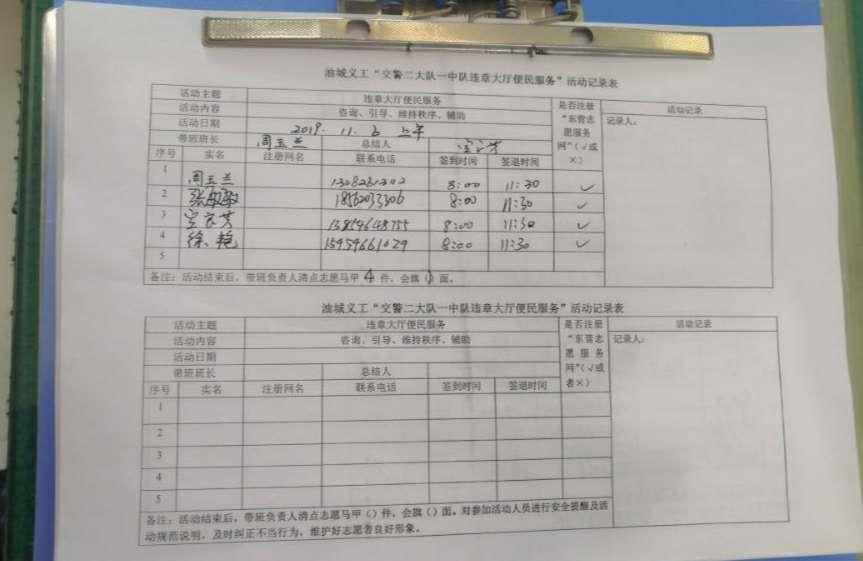 油城义工“交警二大队一中队违章大厅便民服务”活动记录表
活动主题 违章大厅便民服务 是否注册“东营志愿服务网”（√或×） 活动记录
活动内容 咨询、引导、维持秩序、辅助 记录人：
活动日期 2019. 11. 6 上午
带班班长 周玉兰 总结人
序号 实名 注册网名 联系电话 签到时间 签退时间
1 周玉兰 8:00 11:30 ✓
2 张敏 18562033306 8:00 11:30 ✓
3 8:00 11:30 ✓
4 徐艳 15959661029 8:00 11:30 ✓
5
备注：活动结束后，带班负责人清点志愿马甲 4 件，会旗（）面。
油城义工“交警二大队一中队违章大厅便民服务”活动记录表
活动主题 违章大厅便民服务 是否注册“东营志愿服务网”（√或者×） 活动记录
活动内容 咨询、引导、维持秩序、辅助 记录人：
活动日期
带班班长 总结人
序号 实名 注册网名 联系电话 签到时间 签退时间
1
2
3
4
5
备注：活动结束后，带班负责人清点志愿马甲（）件，会旗（）面。对参加活动人员进行安全提醒及活
动规范说明，及时纠正不当行为，维护好志愿者良好形象。